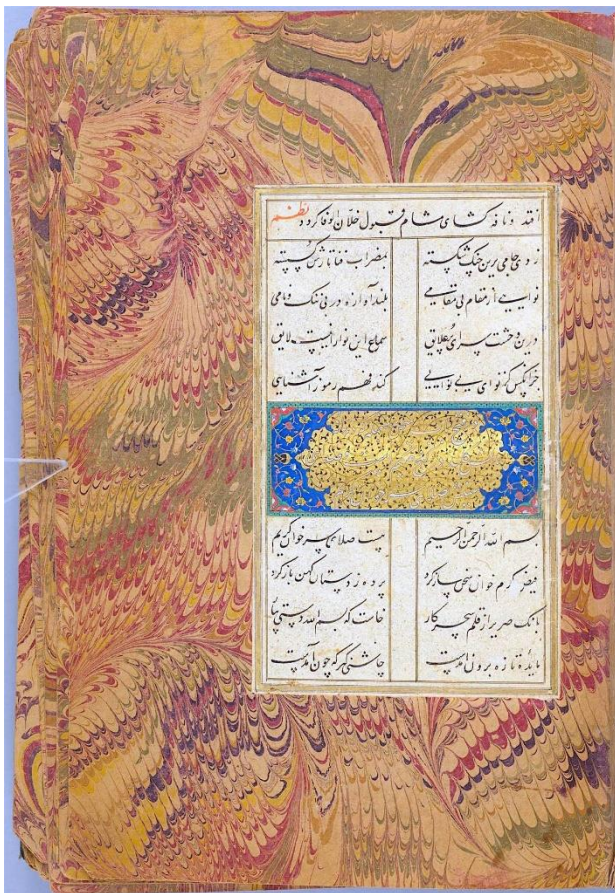 افتد و نافه کشای مشام قبول خلان وفا کردد نظم
زدی جامی برین چنک شکسته بمضراب فنا تارش کسسته
نوایی از مقام بی مقامی بلند آوازه در بی ننک و نامی
درین وحشت سرای پر علایق سماع این نوا را نیست لایق
جز آنکس کز نوای بی نوایی کند فهم رموز آشنایی
بسم الله الرحمن الرحیم هست صلای سر خوان کریم
فیض کرم خوان سخن ساز کرد پرده ز دستان کهن باز کرد
بانک صریر از قلم سحر کار خاست که بسم الله دستی بیار
مایدهٔ تازه برون آمدست چاشنیی کیر که چون آمدست